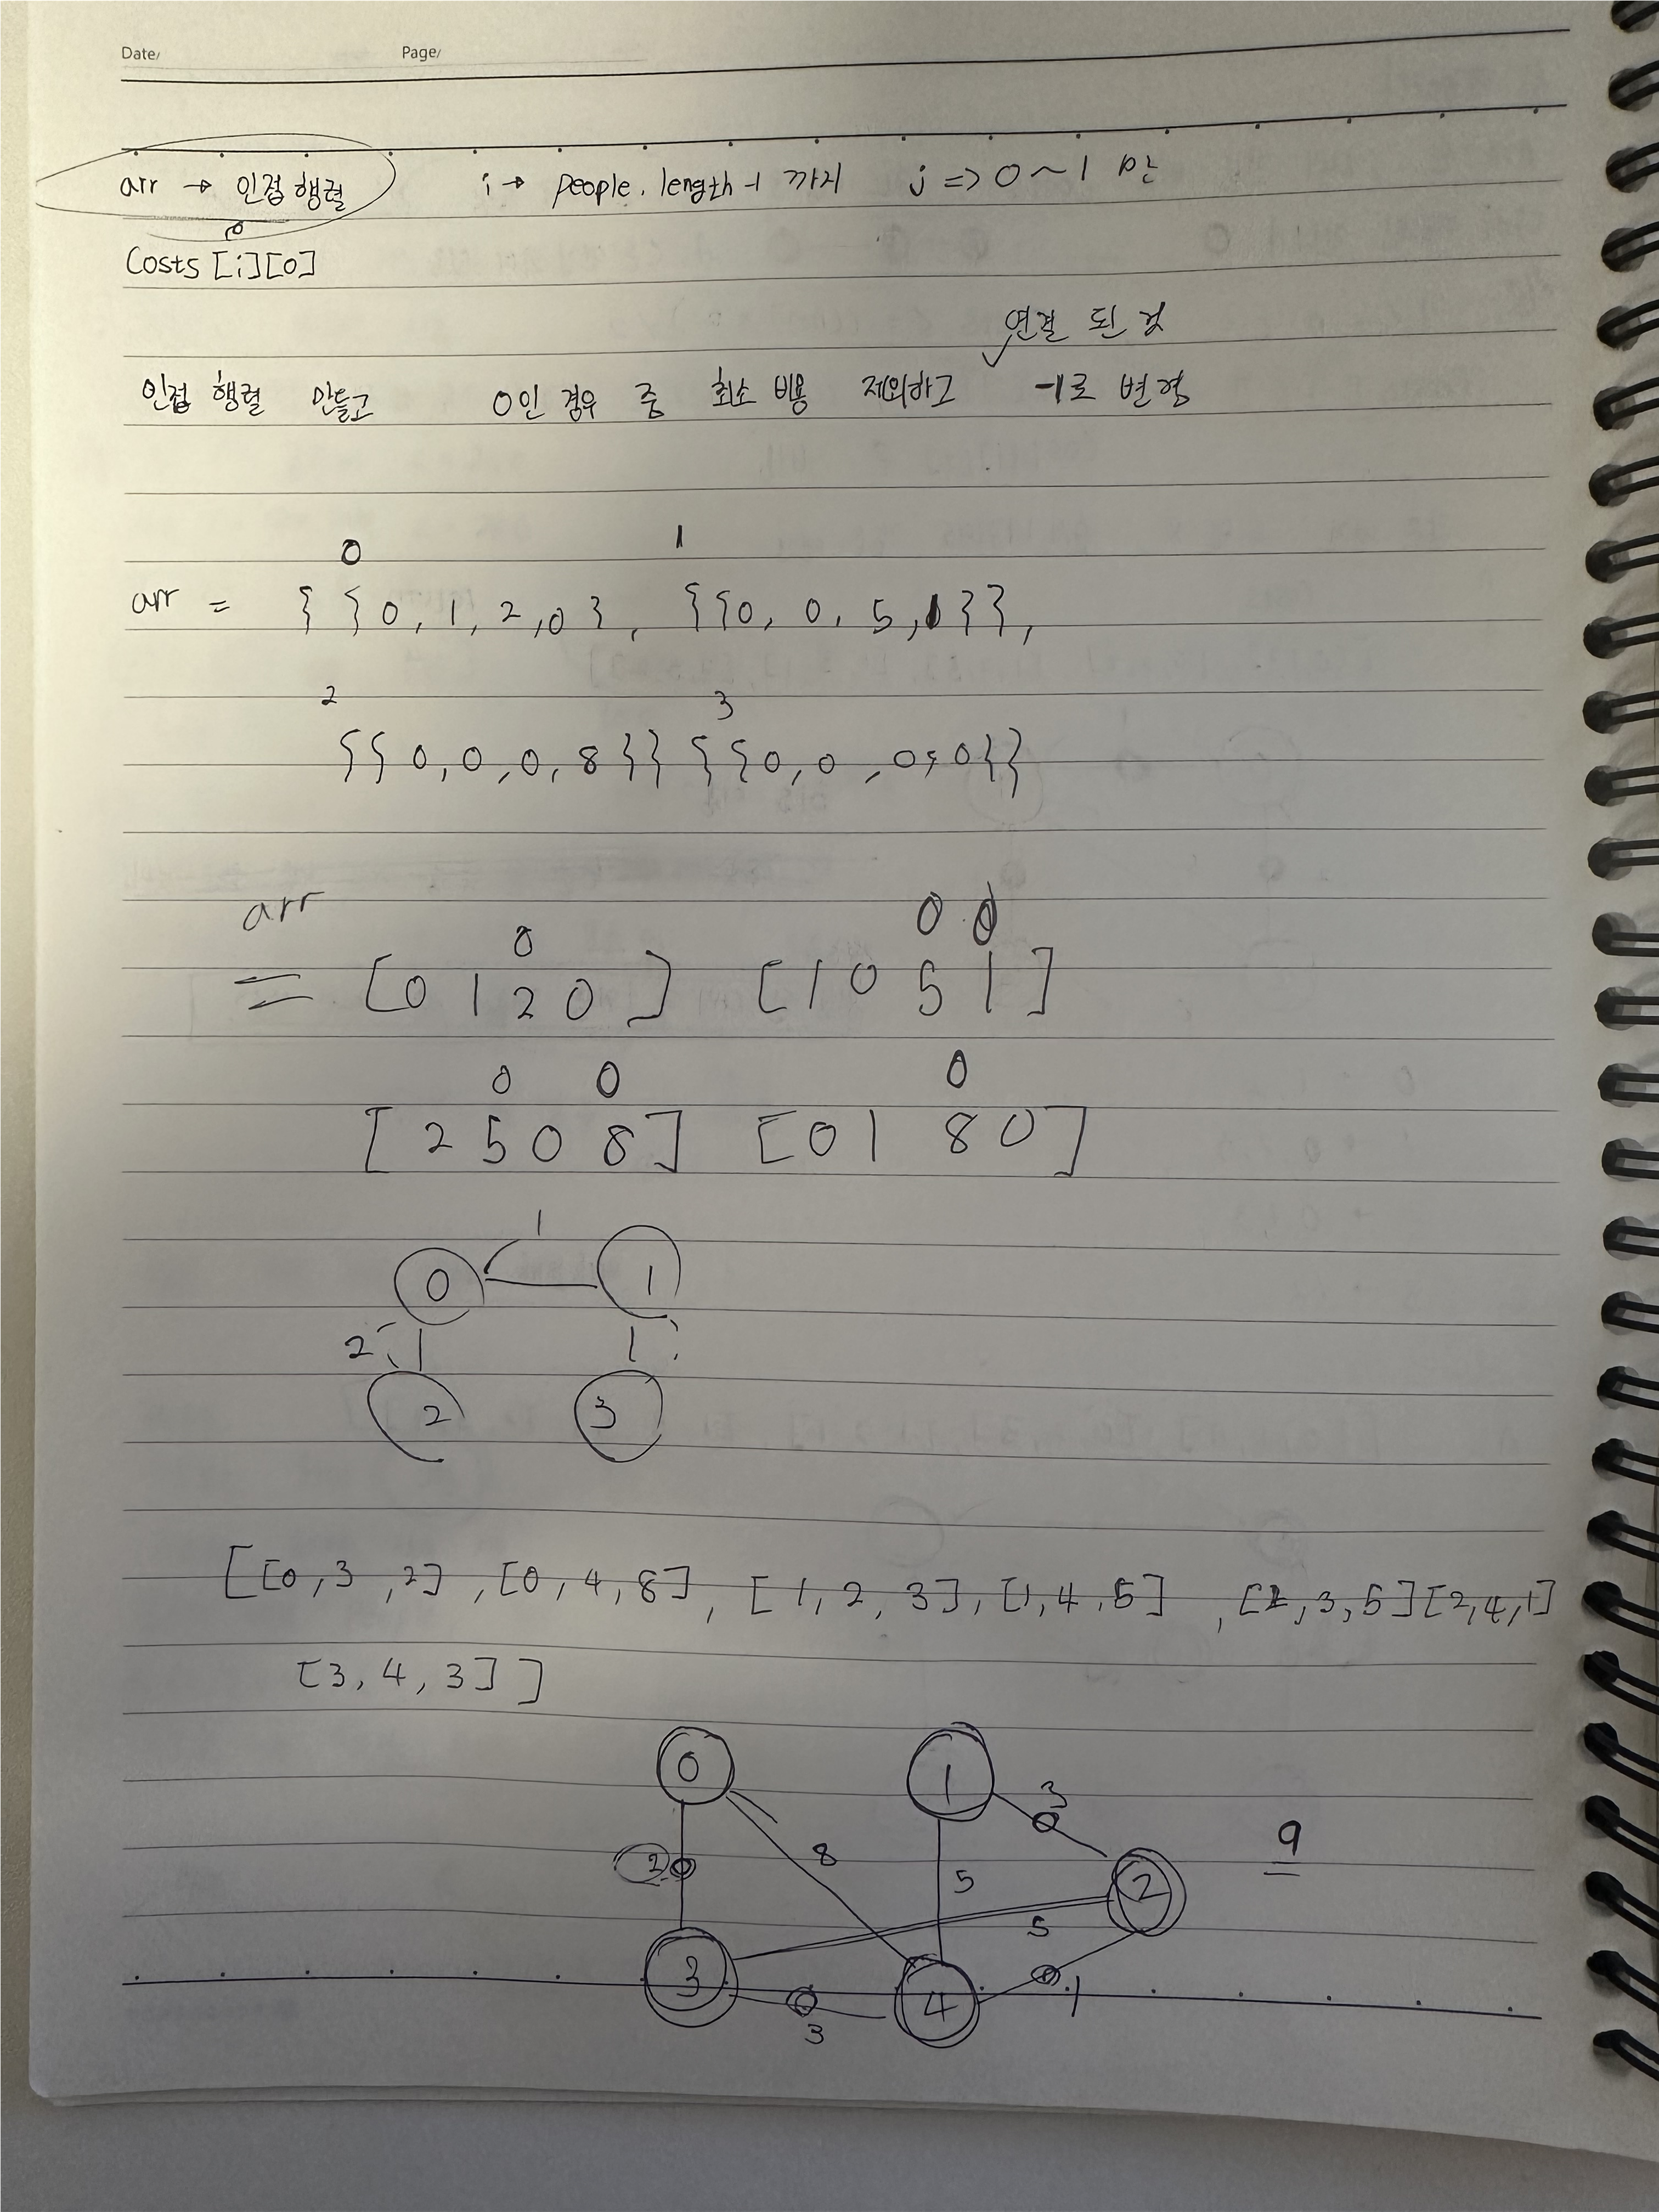 Date/ Page/
arr → 인접 행렬 i → people.length-1 까지 j => 0 ~ 1 만
Costs [i][0]
연결 된 것
인접 행렬 만들고 0인 경우 중 최소 비용 제외하고 -1로 변경
0 1
arr = { { 0, 1, 2, 0 }, { { 0, 0, 5, 1 } },
2 3
{ { 0, 0, 0, 8 } } { { 0, 0, 0, 0 } }
arr
0 0 0
= [ 0 1 2 0 ] [ 1 0 5 1 ]
0 0 0
[ 2 5 0 8 ] [ 0 1 8 0 ]
1
0 1
2 1
2 3
[ [0, 3, 2], [0, 4, 8], [1, 2, 3], [1, 4, 5], [2, 3, 5] [2, 4, 1]
[3, 4, 3] ]
0 1 3
9
2 8 5 2
5
3 4 1
3